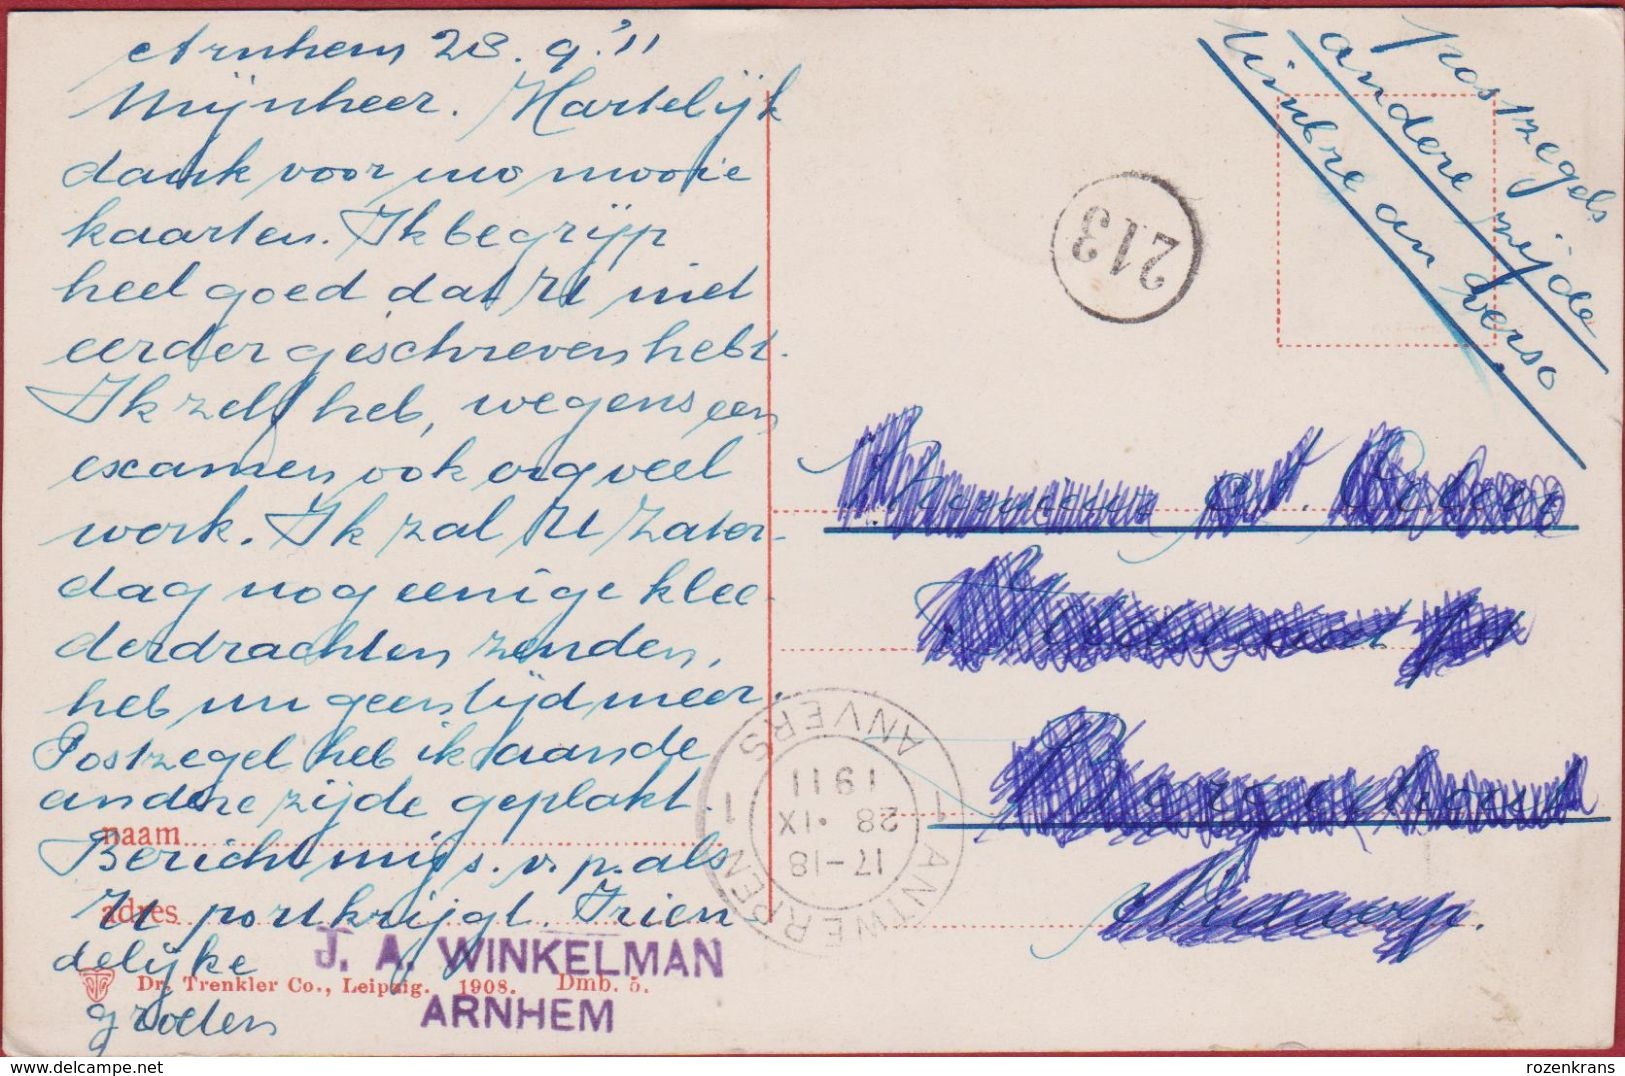 Arnhem 28.9.'11
Mijnheer. Hartelijk
dank voor uw mooie
kaarten. Ik begrijp
heel goed dat U niet
eerder geschreven hebt.
Ik zelf heb, wegens een
examen ook erg veel
werk. Ik zal U Zater-
dag nog eenige klee-
derdrachten zenden,
heb nu geen tijd meer.
Postzegel heb ik aan de
andere zijde geplakt.
naam
Bericht mij s.v.p. als
adres
U port krijgt. Vrien
delijke
groeten
J. A. WINKELMAN
ARNHEM
Dr. Trenkler Co., Leipzig. 1908. Dmb. 5.
postzegels
andere zijde
timbre au verso
213
1 ANTWERPEN 1 ANVERS
17-18
28 • IX
1911
delcampe.net
rozenkrans